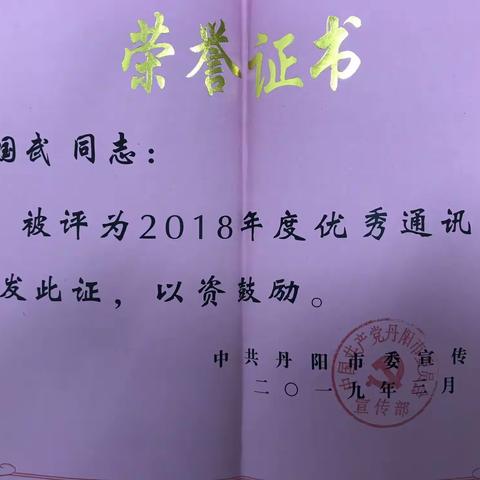 荣誉证书
国武 同志：
被评为2018年度优秀通讯
发此证，以资鼓励。
中共丹阳市委宣传
二〇一九年三月
中国共产党丹阳市委员会
宣传部